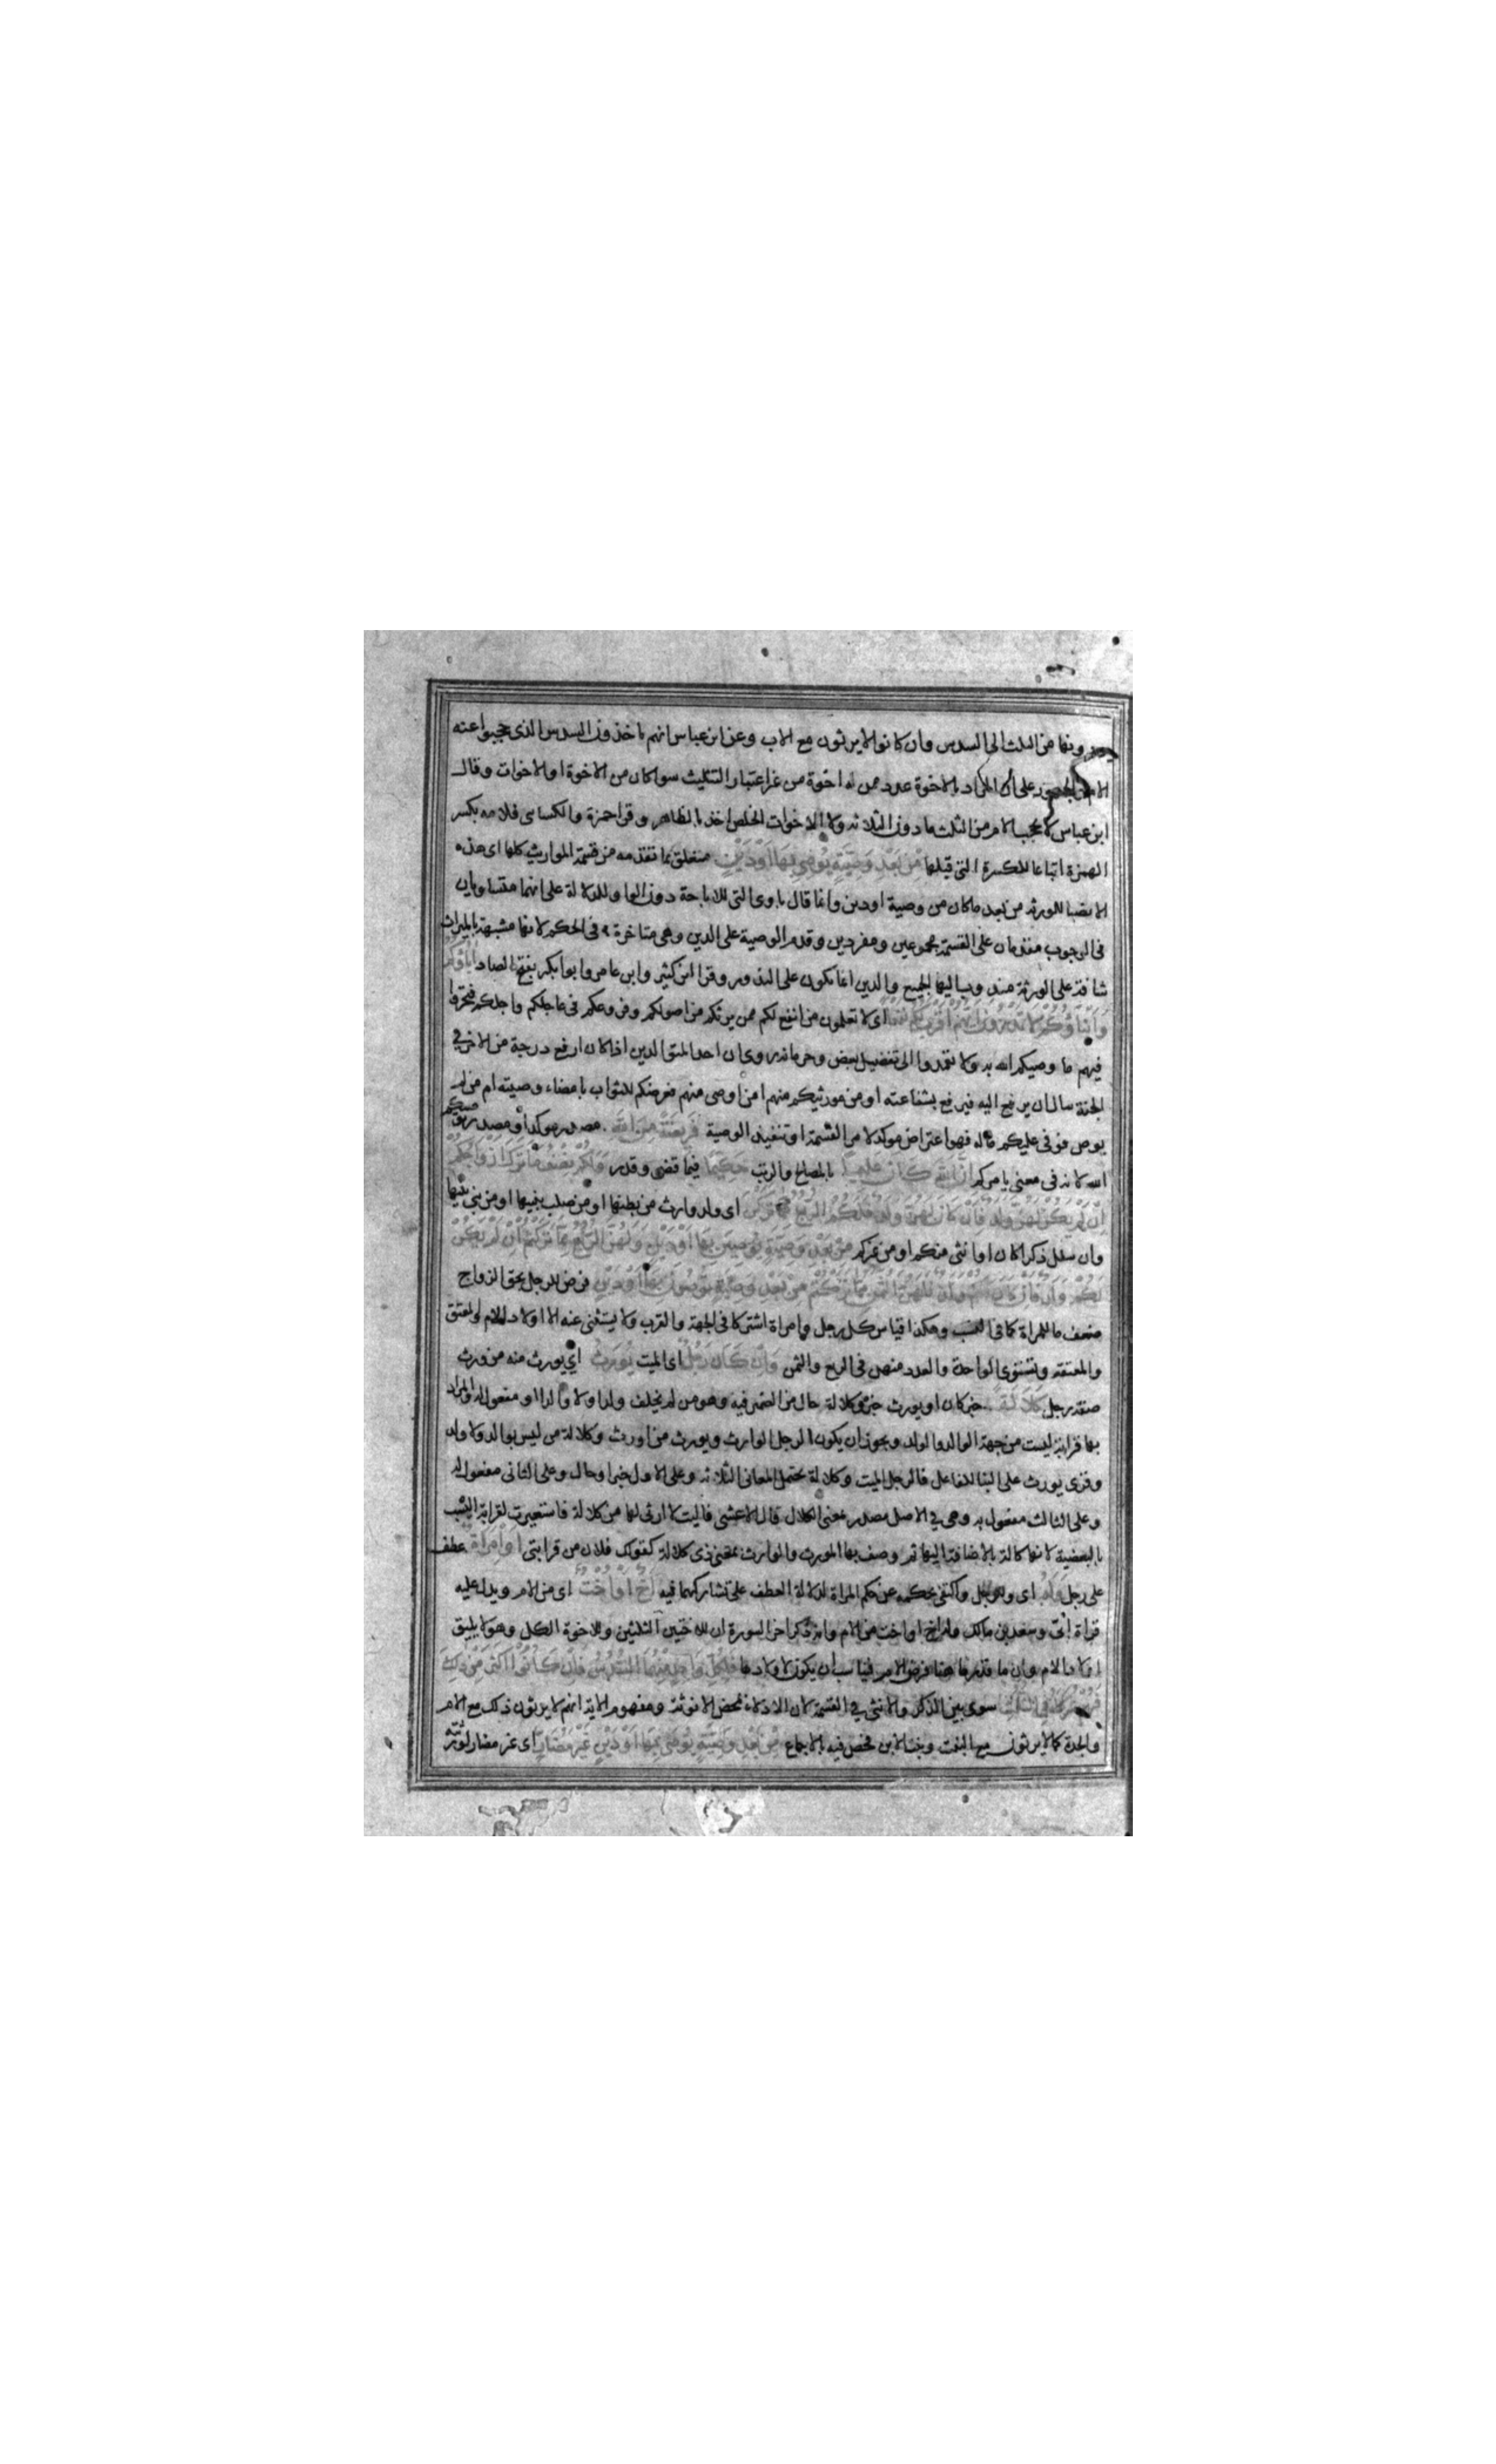 ونها من الثلث الى السدس وان كانوا لا يرثون مع الاب وعن ابن عباس انهم ياخذون السدس الذى حجبوا عنه
الام والجمهور على ان المراد بالاخوة عدد ممن له اخوة من غير اعتبار التثليث سوا كان من الاخوة او الاخوات وقال
ابن عباس لا يحجب الام من الثلث ما دون الثلاثه ولا الاخوات الخلص اخذ بالظاهر وقرا حمزة والكساى فلامه بكسر
الهمزة اتباعا للكسرة التى قبلها مِنْ بَعْدِ وَصِيَّةٍ يُوصِى بِهَا اَوْ دَيْنٍ متعلق بما تقدمه من قسمة المواريث كلها اى هذه
الانصبا للورثه من بعد ما كان من وصية او دين وانما قال باو التى للاباحة دون الواو للدلالة على انهما متساويان
فى الوجوب مقدمان على القسمة مجموعين ومفردين وقدم الوصية على الدين وهى متاخرة فى الحكم لانها مشبهة بالميراث
شاقة على الورثة مندوب اليها الجميع والدين انما يكون على الندور وقرا ابن كثير وابن عامر وابوا بكر بفتح الصاد اٰبَاؤُكُمْ
وَاَبْنَاؤُكُمْ لَا تَدْرُونَ اَيُّهُمْ اَقْرَبُ لَكُمْ نَفْعًا اى لا تعلمون من انفع لكم ممن يرثكم من اصولكم وفروعكم فى عاجلكم واجلكم فتحروا
فيهم ما وصيكم الله به ولا تعمدوا الى تفضيل بعض وحرمانه روى ان احد المتوالدين اذا كان ارفع درجة من الاخر فى
الجنة سال ان يرفع اليه فيرفع بشفاعته او من مورثيكم منهم امن اوصى منهم فعرضكم للثواب بامضاء وصيته ام من لم
يوص فوفى عليكم ماله فهو اعتراض موكد لامر القسمة او تنفيذ الوصية فَرِيضَةً مِنَ اللهِ مصدر موكد او مصدر يوصيكم
الله لانه فى معنى يامركم اِنَّ اللهَ كَانَ عَلِيمًا بالمصالح والرتب حَكِيمًا فيما قضى وقدر وَلَكُمْ نِصْفُ مَا تَرَكَ اَزْوَاجُكُمْ
اِنْ لَمْ يَكُنْ لَهُنَّ وَلَدٌ فَاِنْ كَانَ لَهُنَّ وَلَدٌ فَلَكُمُ الرُّبُعُ مِمَّا تَرَكْنَ اى ولد وارث من بطنها او من صلب بنيها او من بنى بنيها
وان سفل ذكرا كان او انثى منكم او من غيركم مِنْ بَعْدِ وَصِيَّةٍ يُوصِينَ بِهَا اَوْ دَيْنٍ وَلَهُنَّ الرُّبُعُ مِمَّا تَرَكْتُمْ اِنْ لَمْ يَكُنْ
لَكُمْ وَلَدٌ فَاِنْ كَانَ لَكُمْ وَلَدٌ فَلَهُنَّ الثُّمُنُ مِمَّا تَرَكْتُمْ مِنْ بَعْدِ وَصِيَّةٍ تُوصُونَ بِهَا اَوْ دَيْنٍ فرض للرجل بحق الزواج
ضعف ما للمراة كما فى النسب وهكذا قياس كل رجل وامراة اشتركا فى الجهة والقرب ولا يستثنى عنه الا اولاد الام والمعتق
والمعتقة وتستوى الواحدة والعدد منهن فى الربع والثمن وَاِنْ كَانَ رَجُلٌ اى الميت يُورَثُ اى يورث منه من ورث
صفة رجل كَلَالَةً خبر كان او يورث خبره وكلالة حال من الضمير فيه وهو من لم يخلف ولدا ولا والدا او مفعول له والمراد
بها قرابة ليست من جهة الوالد والولد ويجوز ان يكون الرجل الوارث ويورث من اورث وكلالة من ليس بوالد ولا ولد
وقرى يورث على البنا للفاعل فالرجل الميت وكلالة يحتمل المعانى الثلاثه وعلى الاول خبر او حال وعلى الثانى مفعول له
وعلى الثالث مفعول به وهى فى الاصل مصدر بمعنى الكلال قال الاعشى فاليت لا ارثى لها من كلالة فاستعيرت لقرابة ليست
بالبعضية لانها كالة بالاضافة اليها ثم وصف بها المورث والوارث بمعنى ذى كلالة كقولك فلان من قرابتى اَوِ امْرَاَةٌ عطف
على رجل وَلَهُ اى وللرجل واكتفى بحكمه عن حكم المراة لدلالة العطف على تشاركهما فيه اَخٌ اَوْ اُخْتٌ اى من الام ويدل عليه
قراة ابى وسعد بن مالك وله اخ او اخت من الام وانه ذكر اخر السورة ان للاختين الثلثين وللاخوة الكل وهو لا يليق
اولاد الام وان ما قدر ها هنا فرض الام فيناسب ان يكون لاولادها فَلِكُلِّ وَاحِدٍ مِنْهُمَا السُّدُسُ فَاِنْ كَانُوا اَكْثَرَ مِنْ ذٰلِكَ
فَهُمْ شُرَكَاءُ فِى الثُّلُثِ سوى بين الذكر والانثى فى القسمة لان الادلاء بمحض الانوثة ومفهوم الاية انهم لا يرثون ذلك مع الام
والجدة كما لا يرثون مع البنت وبنت الابن فخص فيه بالاجماع مِنْ بَعْدِ وَصِيَّةٍ يُوصَى بِهَا اَوْ دَيْنٍ غَيْرَ مُضَارٍّ اى غير مضار لورثته